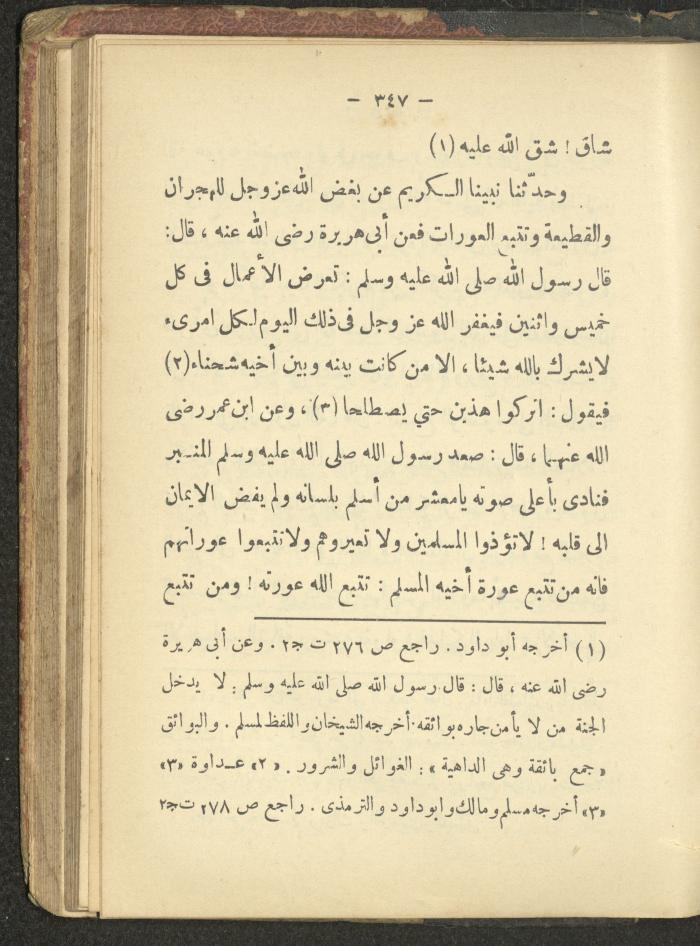 — ٣٤٧ —
شاق ! شق الله عليه (١)
وحدّثنا نبينا الكريم عن بغض الله عز وجل للهجران
والقطيعة وتتبع العورات فعن أبى هريرة رضى الله عنه ، قال:
قال رسول الله صلى الله عليه وسلم : تعرض الأعمال فى كل
خميس واثنين فيغفر الله عز وجل فى ذلك اليوم لكل امرىء
لايشرك بالله شيئا ، الا من كانت بينه وبين أخيه شحناء(٢)
فيقول : اتركوا هذين حتي يصطلحا (٣) ، وعن ابن عمر رضى
الله عنهما ، قال : صعد رسول الله صلى الله عليه وسلم المنبر
فنادى بأعلى صوته يامعشر من أسلم بلسانه ولم يفض الايمان
الى قلبه ! لاتؤذوا المسلمين ولا تعيروهم ولاتتبعوا عوراتهم
فانه من تتبع عورة أخيه المسلم : تتبع الله عورته ! ومن تتبع
(١) أخرجه أبو داود . راجع ص ٢٧٦ ت ج٢ . وعن أبى هريرة
رضى الله عنه ، قال : قال رسول الله صلى الله عليه وسلم : لا يدخل
الجنة من لا يأمن جاره بوائقه . أخرجه الشيخان واللفظ لمسلم . والبوائق
« جمع بائقة وهى الداهية » : الغوائل والشرور . «٢» عداوة «٣»
«٣» أخرجه مسلم ومالك وابو داود والترمذى . راجع ص ٢٧٨ ت ج٢